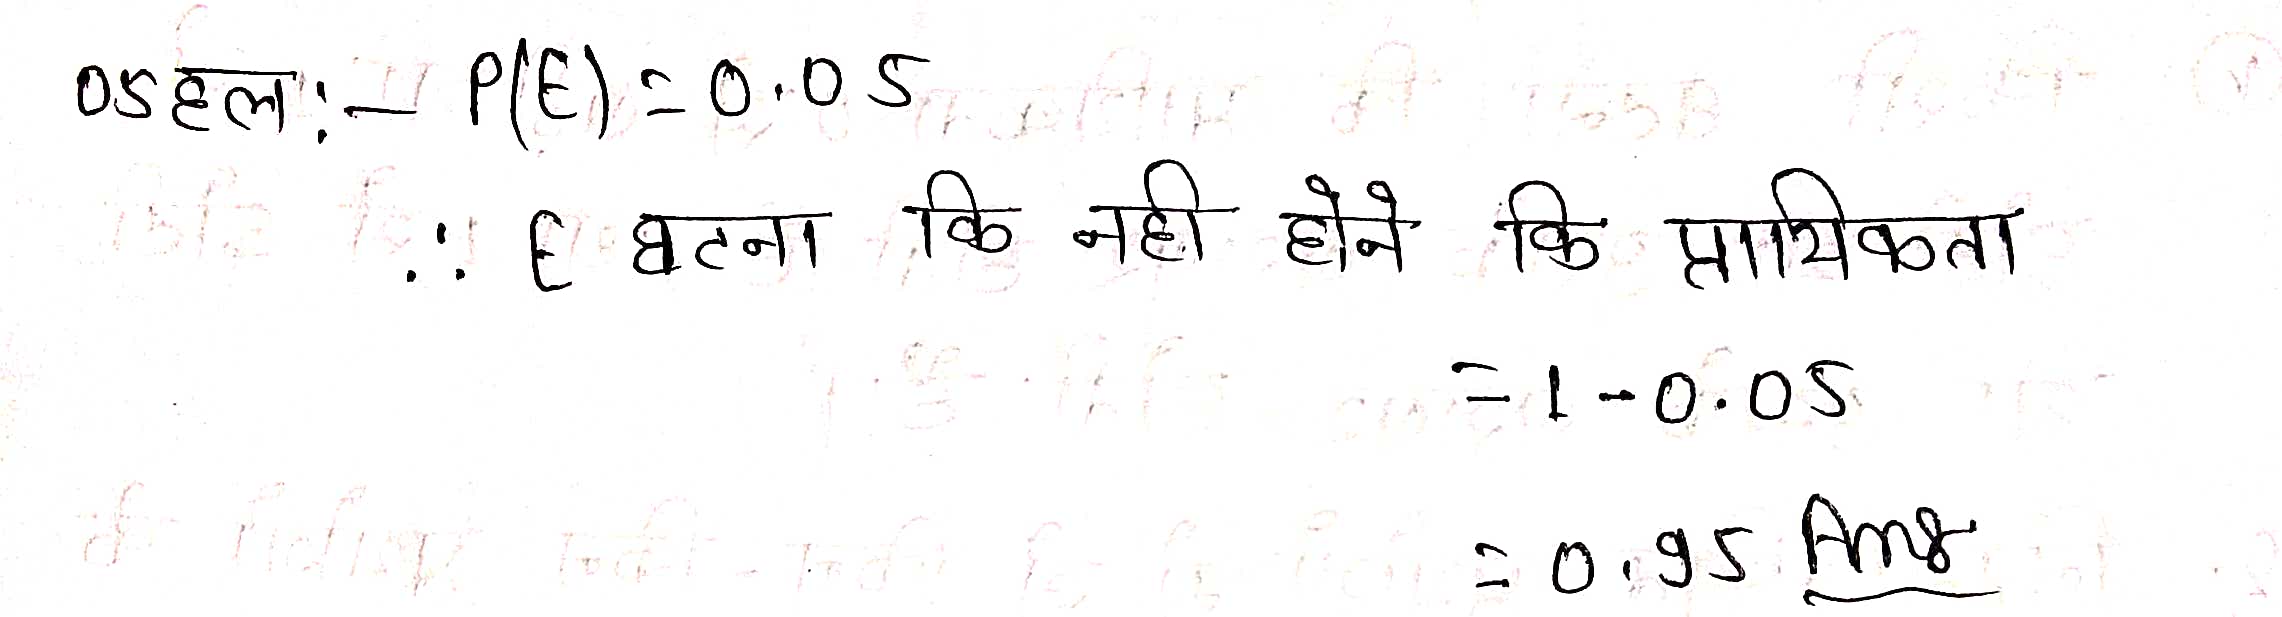 05 हल :- P(E) = 0.05
∴ E घटना कि नही होने कि प्रायिकता
= 1 - 0.05
= 0.95 Ans